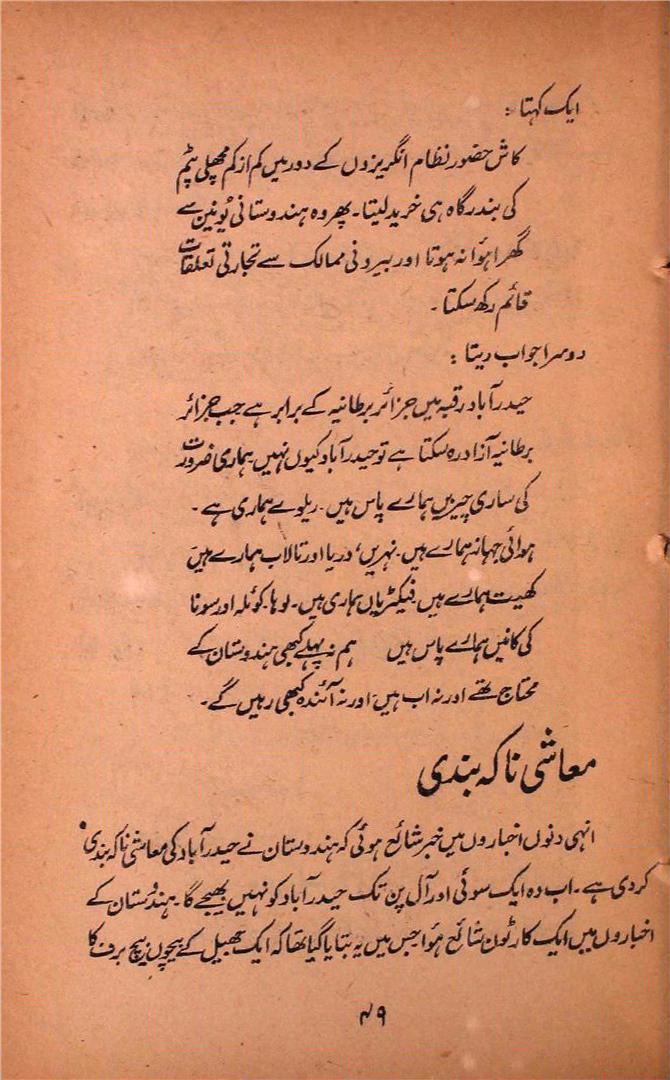 ایک کہتا :
کاش حضور نظام انگریزوں کے دور میں کم از کم مچھلی پٹم
کی بندرگاہ ہی خرید لیتا۔ پھر وہ ہندوستانی یُونین سے
گھرا ہؤا نہ ہوتا اور بیرونی ممالک سے تجارتی تعلقات
قائم رکھ سکتا۔
دوسرا جواب دیتا :
حیدرآباد رقبہ میں جزائر برطانیہ کے برابر ہے جب جزائر
برطانیہ آزاد رہ سکتا ہے تو حیدرآباد کیوں نہیں ہماری ضرورت
کی ساری چیزیں ہمارے پاس ہیں۔ ریلوے ہماری ہے۔
ہوائی جہاز ہمارے ہیں۔ نہریں، دریا اور تالاب ہمارے ہیں
کھیت ہمارے ہیں فیکٹریاں ہماری ہیں۔ لوہا۔ کوئلہ اور سونا
کی کانیں ہمارے پاس ہیں ہم نہ پہلے کبھی ہندوستان کے
محتاج تھے اور نہ اب ہیں اور نہ آئندہ کبھی رہیں گے۔
معاشی ناکہ بندی
انہی دنوں اخباروں میں خبر شائع ہوئی کہ ہندوستان نے حیدرآباد کی معاشی ناکہ بندی
کر دی ہے۔ اب وہ ایک سوئی اور آل پن تک حیدرآباد کو نہیں بھیجے گا۔ ہندُستان کے
اخباروں میں ایک کارٹون شائع ہؤا جس میں یہ بتایا گیا تھا کہ ایک جھیل کے بیچوں بیچ برف کا
۴۹